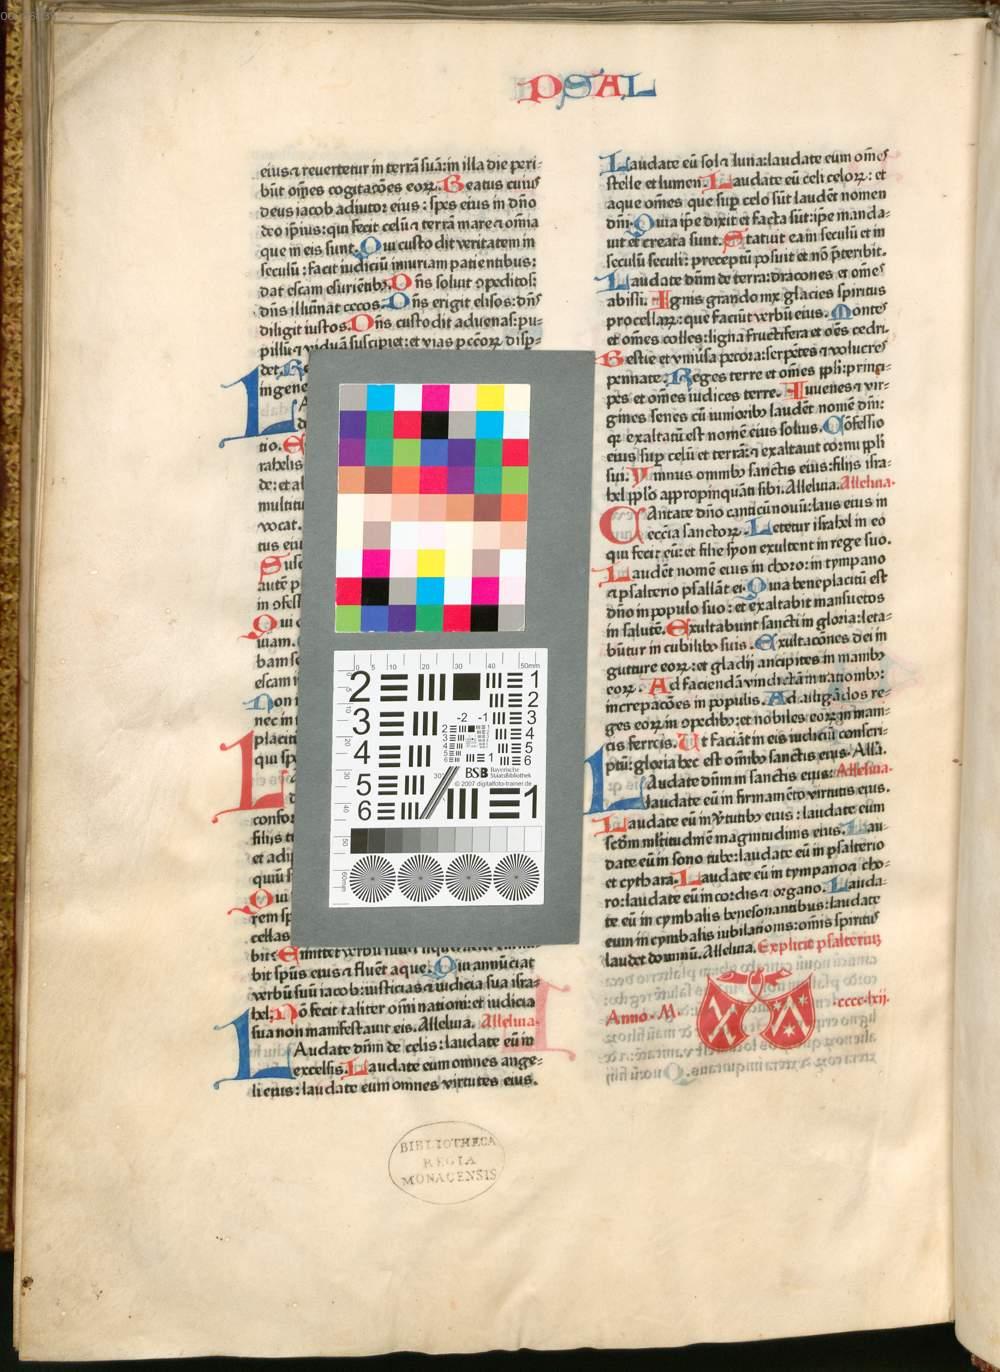 PSAL
eius ⁊ reuertetur in terrã suã: in illa die peri-
bũt oм̃es cogitacões eoꝝ. Beatus cuius
deus iacob adiutor eius: spes eius in dño
deo ip̃ius: qui fecit celũ ⁊ terrã mare ⁊ om̃ia
que in eis sunt. Qui custodit veritatem in
seculũ: facit iudiciũ iniuriam patientibus:
dat escam esurientibꝫ. Dñs soluit ꝯpeditos:
dñs illũinat cecos. Dñs erigit elisos: dñs
diligit iustos. Dñs custodit aduenas: pu-
pillũ ⁊ viduã suscipiet: et vias pccõꝝ disp-
det. Re
in gene
A
tio. Et
rabelis
de: et al
multitu
vocat.
tus eiu
Susc
autẽ p
in ꝯfess
Qui
uiam.
bam se
escam i
Non
nec in
placitũ
qui sp
L
confor
filijs t
et adip
quiũ
Qui
rem sp
cellas
bit? Emittet verbũ suũ
bit spũs eius ⁊ fluẽt aque. Qui annũciat
verbũ suũ iacob: iusticias ⁊ iudicia sua isra-
hel. Nõ fecit taliter om̃i nationi: et iudicia
sua non manifestauit eis. Alleluia. Alleluia.
LAudate dñm de celis: laudate eũ in
excelsis. Laudate eum omnes ange-
li eius: laudate eum omnes virtutes eius.
Laudate eũ sol ⁊ luna: laudate eum om̃es
stelle et lumen. Laudate eũ celi celoꝝ: et
aque om̃es que sup celo sũt laudẽt nomen
dñi. Quia ip̃e dixit et facta sũt: ip̃e manda-
uit et creata sunt. Statuit ea in seculũ et in
seculũ seculi: preceptũ posuit et nõ p̃teribit.
Laudate dñm de terra: dracones et om̃es
abissi. Ignis grando nix glacies spiritus
procellaꝝ: que faciũt verbũ eius. Montes
et om̃es colles: ligna fructifera et oẽs cedri.
Bestie et vniũsa pecora: serpẽtes ⁊ volucres
pennate. Reges terre et om̃es ppli: princi-
pes et om̃es iudices terre. Iuuenes ⁊ vir-
gines senes cũ iunioribꝫ laudẽt nomẽ dñi:
qꝛ exaltatũ est nomẽ eius solius. Cõfessio
eius sup celũ et terrã: ⁊ exaltauit cornu ppli
sui. Ymnus omnibꝫ sanctis eius: filijs isra-
hel pplo appropinquãti sibi. Alleluia. Alleluia.
CAntate dño canticũ nouũ: laus eius in
eccĩa sanctoꝝ. Letetur israhel in eo
qui fecit eũ: et filie syon exultent in rege suo.
Laudẽt nomẽ eius in choro: in tympano
⁊ psalterio psallãt ei. Quia beneplacitũ est
dño in populo suo: et exaltabit mansuetos
in salutẽ. Exultabunt sancti in gloria: leta-
bũtur in cubilibꝫ suis. Exultacões dei in
gutture eoꝝ: et gladij ancipites in manibꝫ
eoꝝ. Ad faciendã vindictã in nationibꝫ:
increpacões in populis. Ad alligãdos re-
ges eoꝝ in ꝯpedibꝫ: et nobiles eoꝝ in mani-
cis ferreis. Ut faciãt in eis iudiciũ conscri-
ptũ: gloria hec est om̃ibꝫ sanctis eius. All'a.
LAudate dñm in sanctis eius: Alleluia.
laudate eũ in firmamẽto virtutis eius.
Laudate eũ in v̾tutibꝫ eius: laudate eum
scd̃m ml̃titudinẽ magnitudinis eius. Lau-
date eũ in sono tube: laudate eũ in psalterio
et cythara. Laudate eũ in tympano ⁊ cho-
ro: laudate eũ in cordis ⁊ organo. Lauda-
te eũ in cymbalis benesonantibus: laudate
eum in cymbalis iubilationis: om̃is spiritus
laudet dominũ. Alleluia. Explicit psalterium
Anno. M. cccc.lxij.
0 5 10 20 30 40 50mm
2 1
2
3 -2 -1 3
4 4
5
5 6
BSB Bayerische StaatsBibliothek
© 2007 digitalfoto-trainer.de
6 1
BIBLIOTHECA
REGIA
MONACENSIS